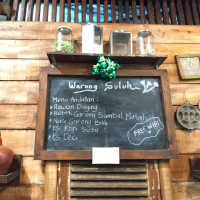 Warung Suluh
Menu Andalan :
Rawon Daging
Bebek Goreng Sambal Matah
Nasi Goreng Bali
Es Kopi Susu
Es Deci
FREE WIFI